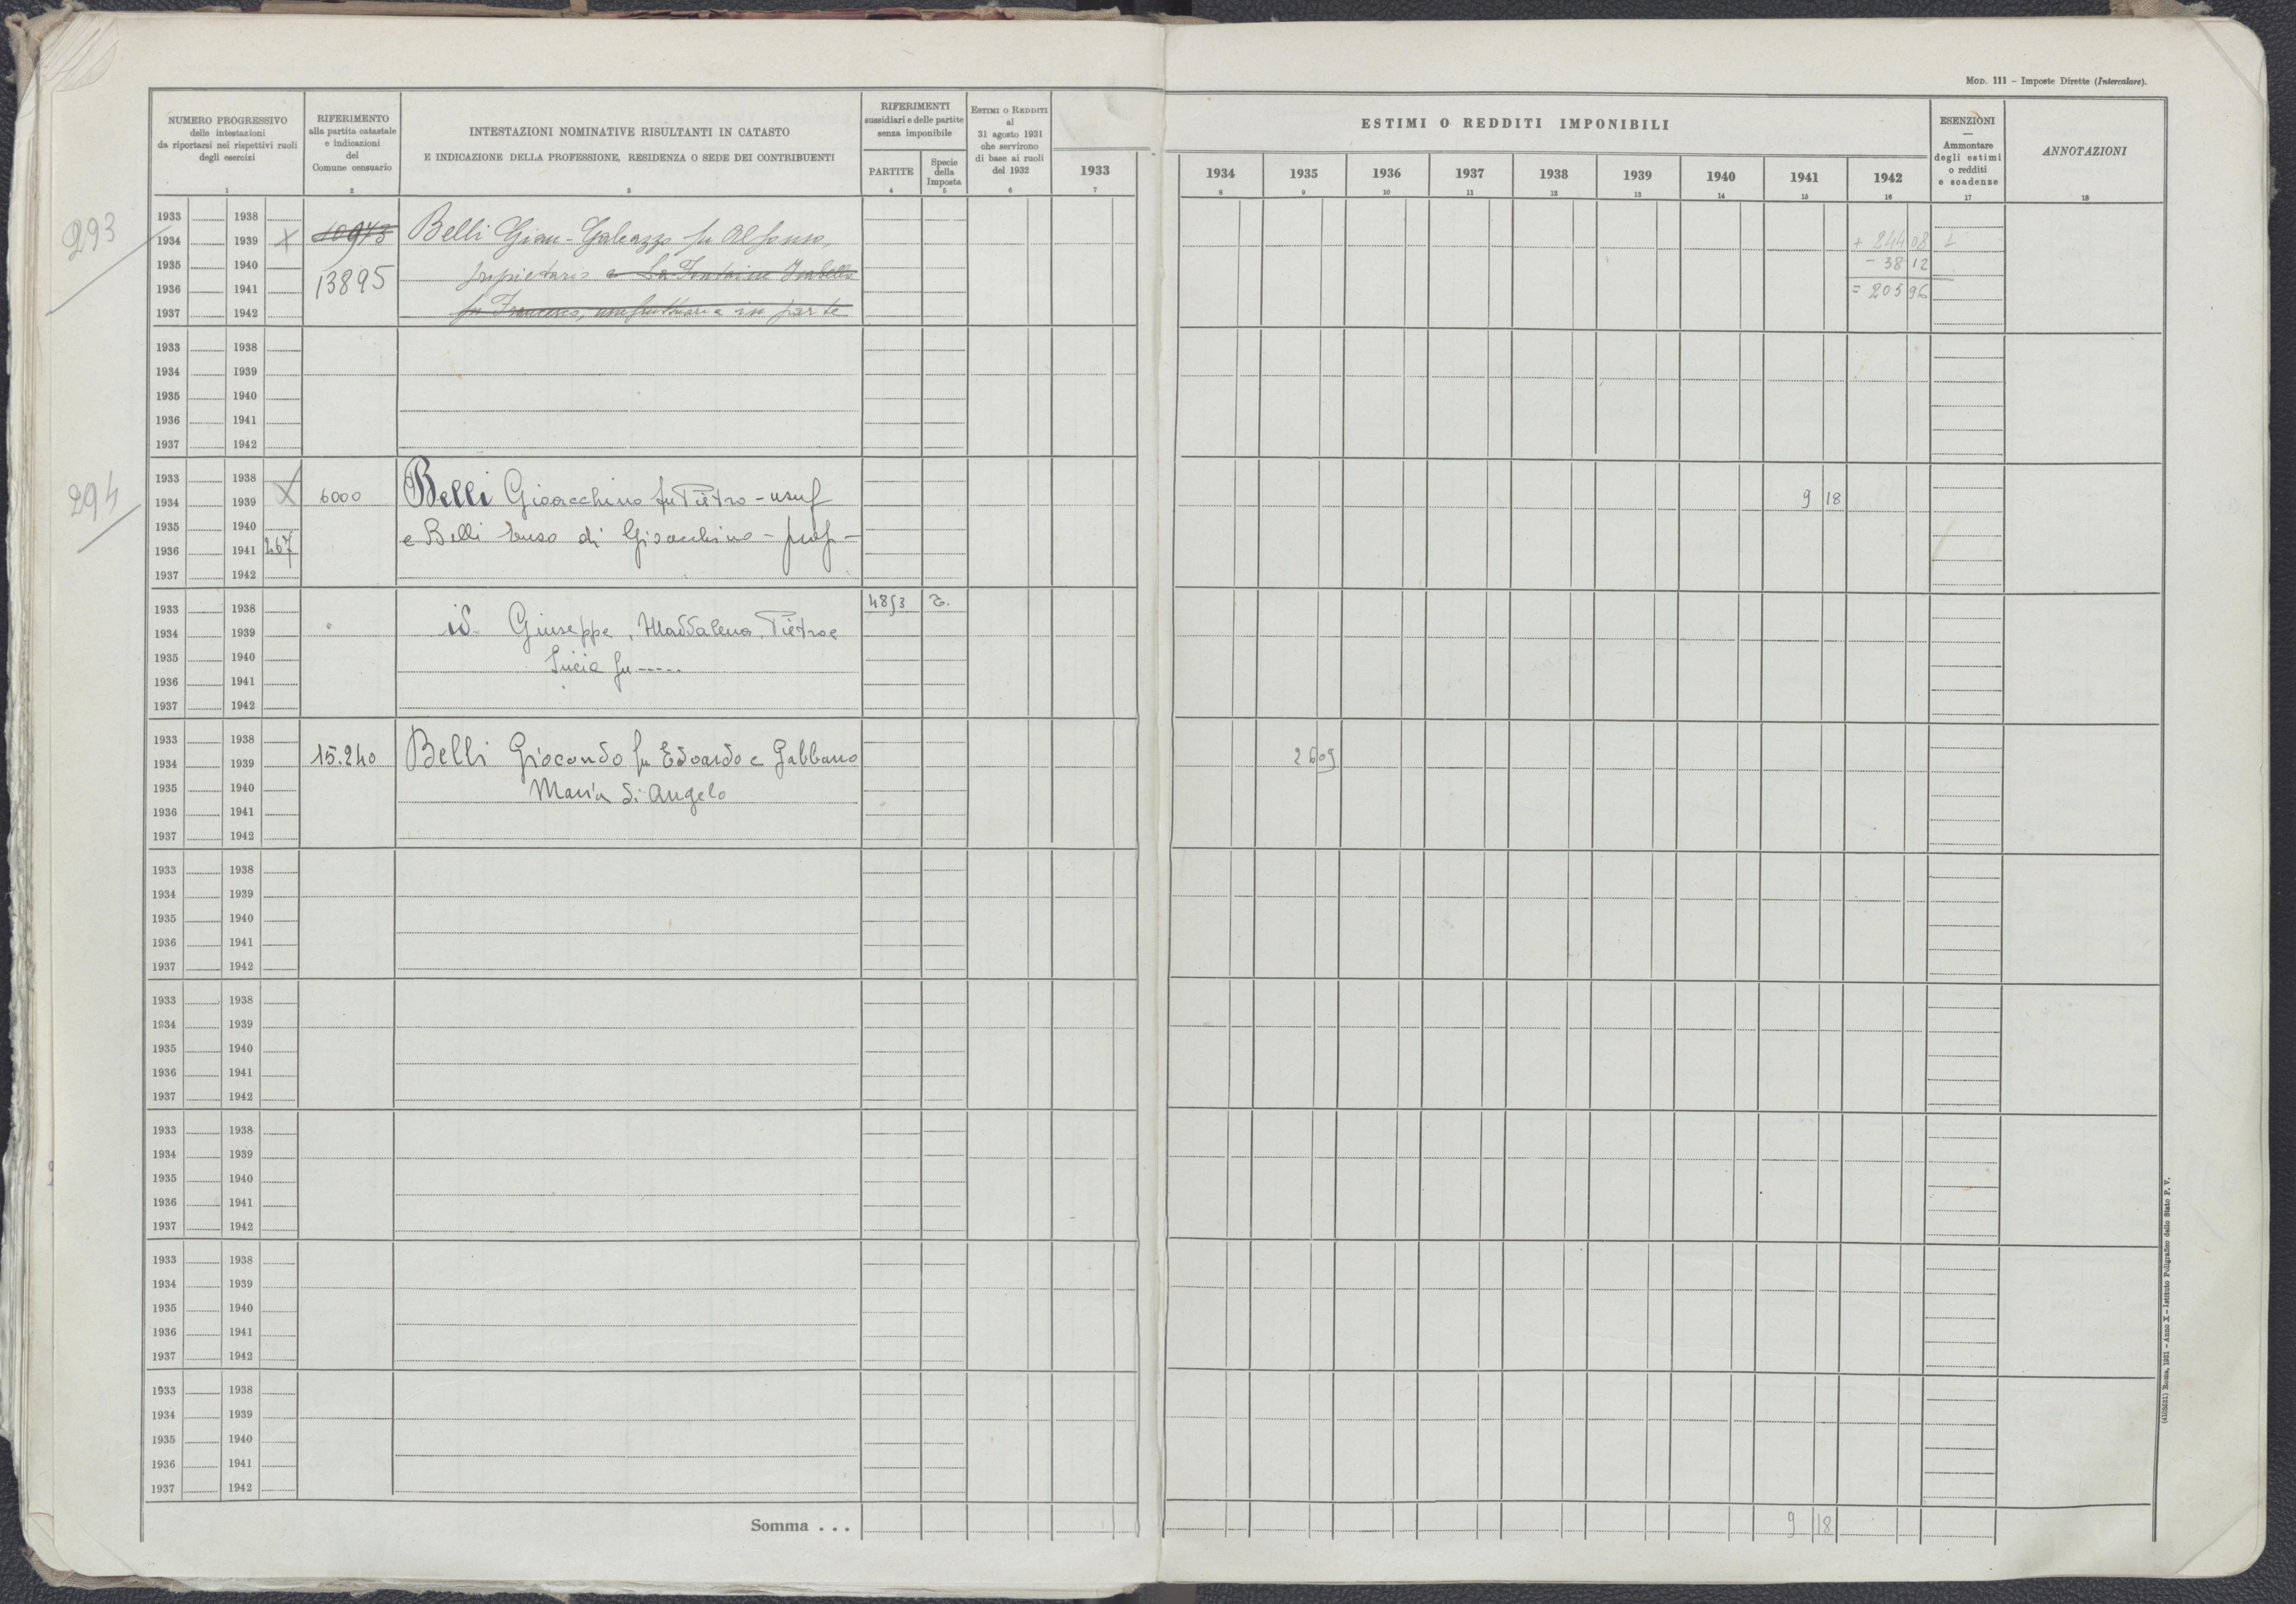 MOD. 111 – Imposte Dirette (Intercalare).
NUMERO PROGRESSIVO
delle intestazioni
da riportarsi nei rispettivi ruoli
degli esercizi
1
RIFERIMENTO
alla partita catastale
e indicazioni
del
Comune censuario
2
INTESTAZIONI NOMINATIVE RISULTANTI IN CATASTO
E INDICAZIONE DELLA PROFESSIONE, RESIDENZA O SEDE DEI CONTRIBUENTI
3
RIFERIMENTI
sussidiari e delle partite
senza imponibile
PARTITE
4
Specie
della
Imposta
5
ESTIMI O REDDITI
al
31 agosto 1931
che servirono
di base ai ruoli
del 1932
6
1933
7
ESTIMI O REDDITI IMPONIBILI
1934 1935 1936 1937 1938 1939 1940 1941 1942
8 9 10 11 12 13 14 15 16
ESENZIONI
—
Ammontare
degli estimi
o redditi
e scadenze
17
ANNOTAZIONI
18
293
1933 1938
1934 1939 X 10973 Belli Gian-Galeazzo fu Alfonso,
+ 244 08
1935 1940 proprietario e La Fontaine Isabella
- 38 12
1936 1941 13895
= 205 96
1937 1942 fu Francesco, usufruttuaria in parte
1933 1938
1934 1939
1935 1940
1936 1941
1937 1942
294
1933 1938
1934 1939 X 6000 Belli Gioacchino fu Pietro - usuf
9 18
1935 1940
1936 1941 267 e Belli di Gioacchino - prop -
1937 1942
1933 1938 4853 T.
1934 1939 id. Giuseppe, Maddalena, Pietro e
1935 1940 Lucia fu -----
1936 1941
1937 1942
1933 1938
1934 1939 15.240 Belli Giocondo fu Edoardo e Gabbano
26 09
1935 1940 Maria di Angelo
1936 1941
1937 1942
1933 1938
1934 1939
1935 1940
1936 1941
1937 1942
1933 1938
1934 1939
1935 1940
1936 1941
1937 1942
1933 1938
1934 1939
1935 1940
1936 1941
1937 1942
1933 1938
1934 1939
1935 1940
1936 1941
1937 1942
1933 1938
1934 1939
1935 1940
1936 1941
1937 1942
Somma . . .
9 18
Roma, 1931 – Anno X – Istituto Poligrafico dello Stato P. V.